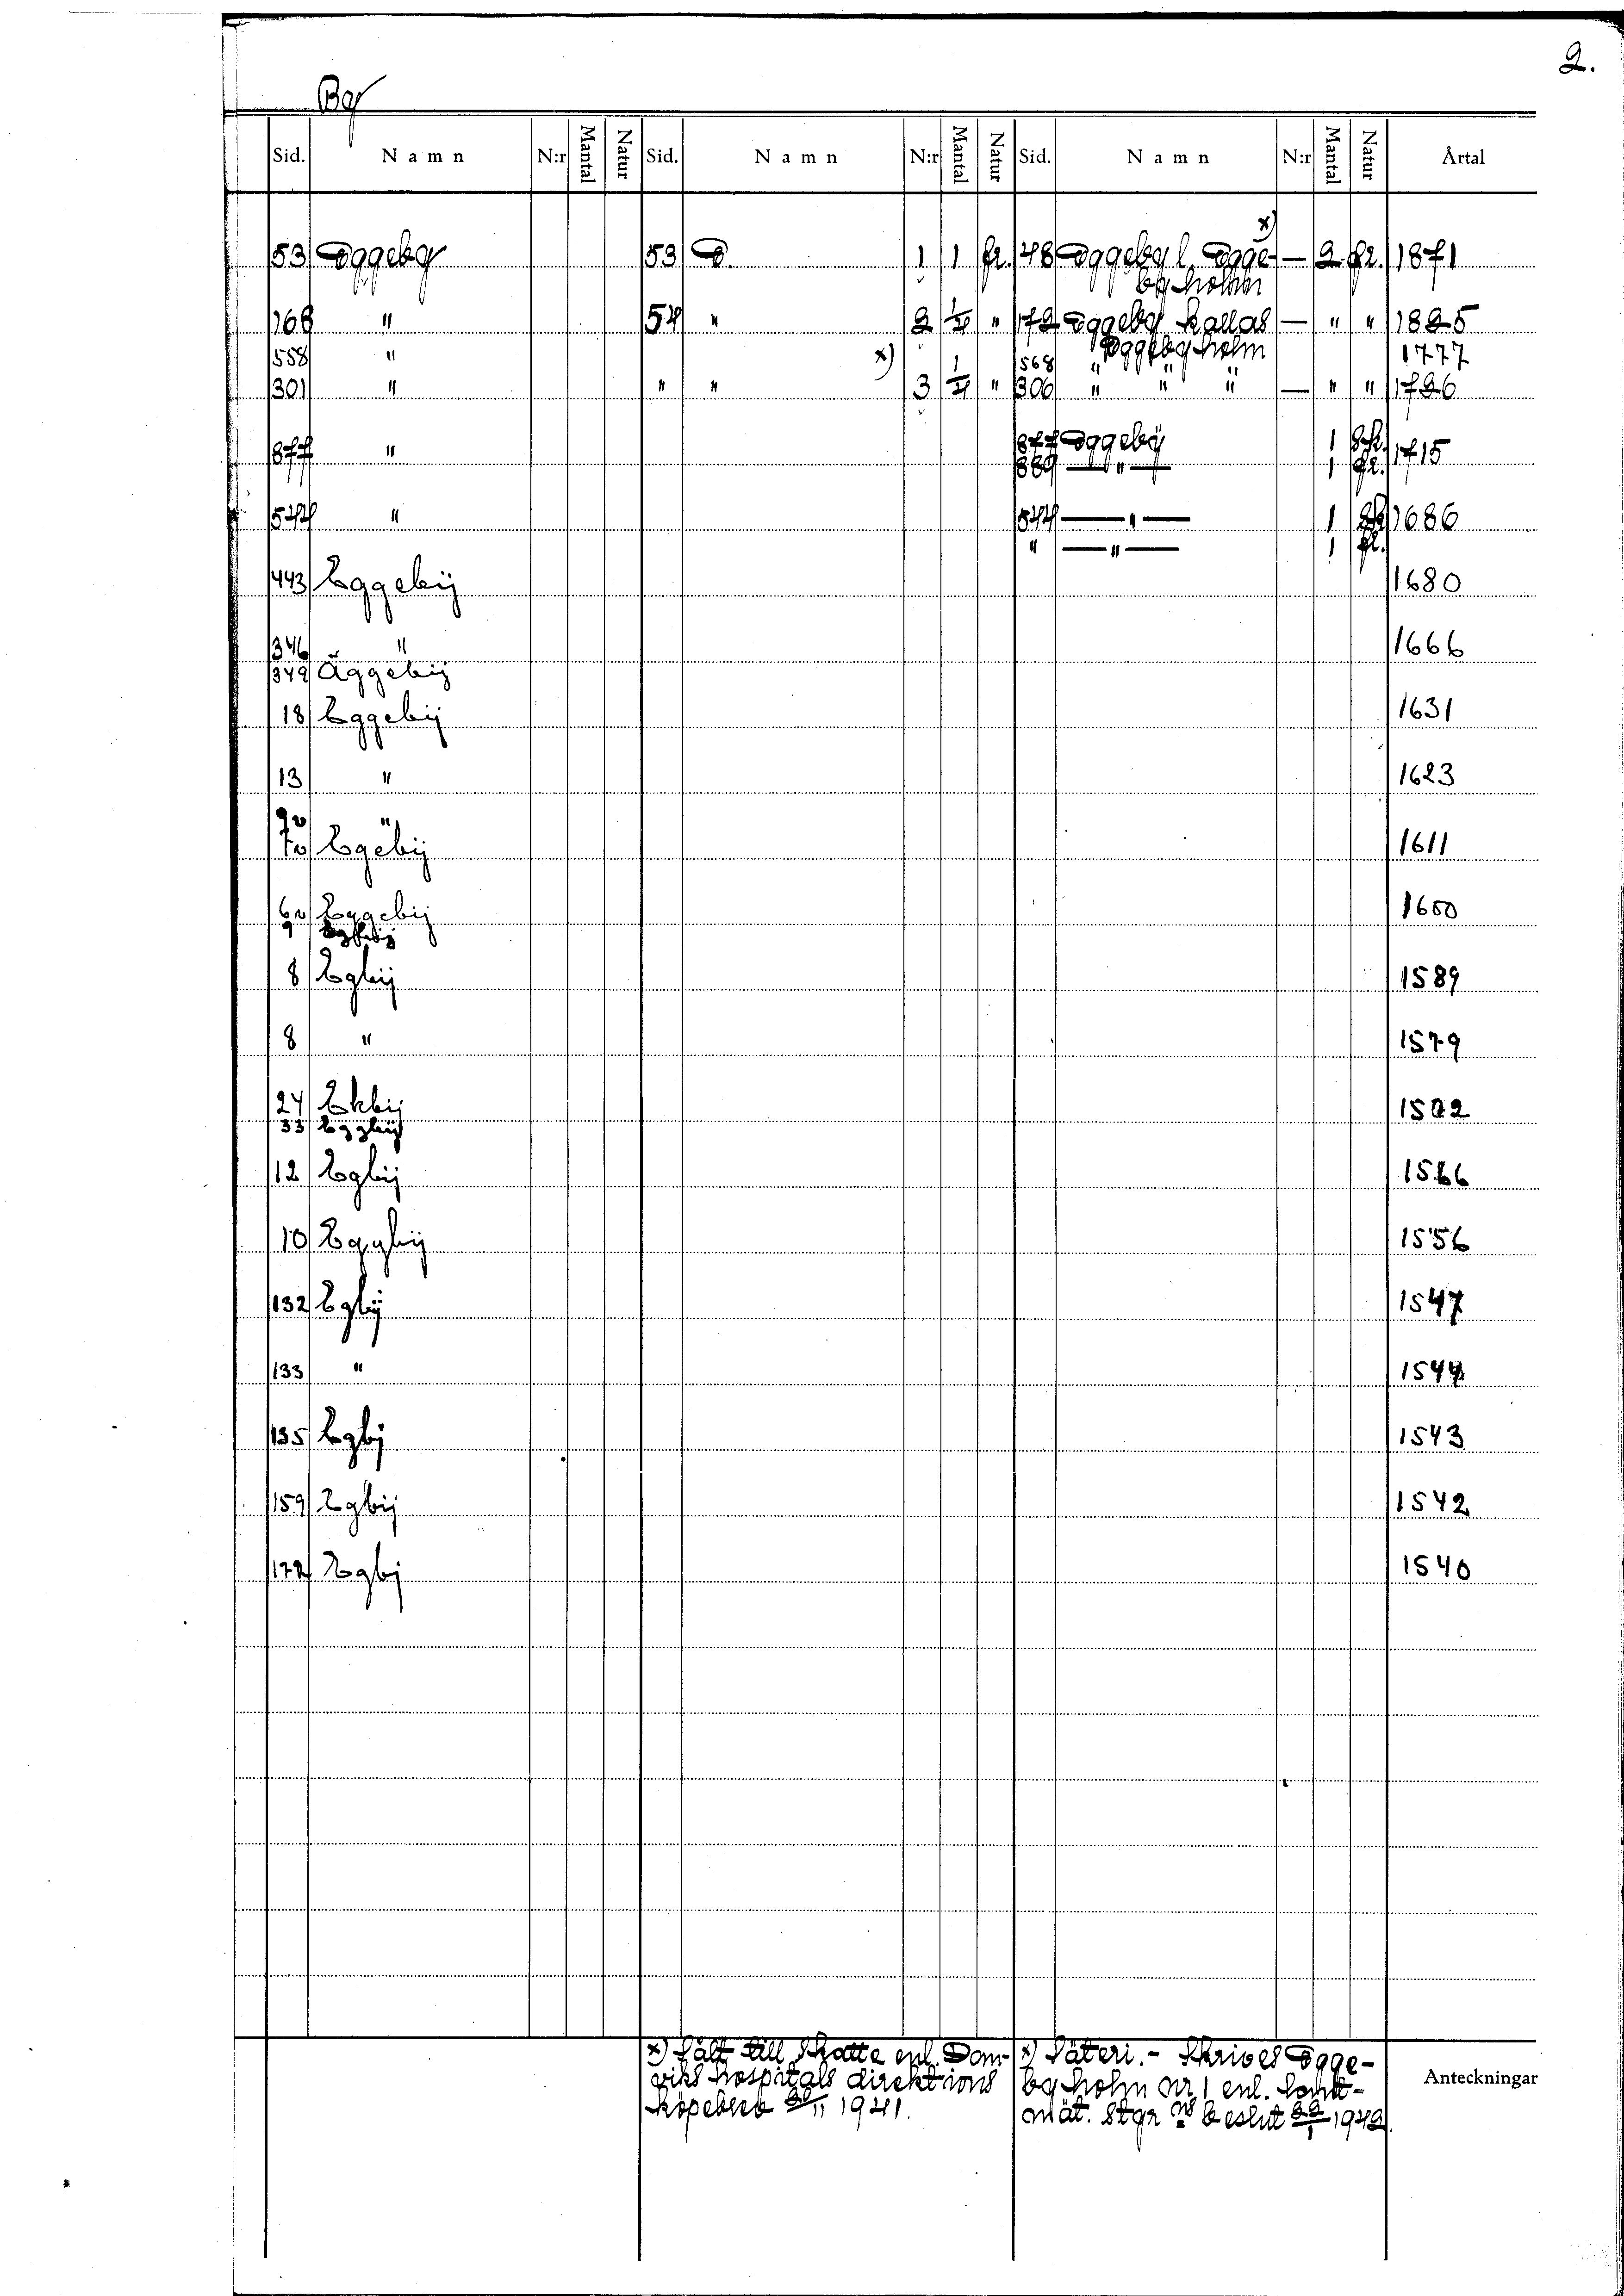 2.
By
Sid. Namn N:r Mantal Natur Sid. Namn N:r Mantal Natur Sid. Namn N:r Mantal Natur Årtal
x)
53 Eggeby 53 D. 1 1 fr. 48 Eggeby l. Egge- — 2 fr. 1871
by holm
168 " 54 " 2 1/4 " 172 Eggeby kallas — " " 1825
Eggebyholm
558 " x) 568 " 1777
301 " " " 3 1/4 " 306 " " " — " " 1726
877 " 877 Eggebÿ 1 sk. 1715
889 — " — 1 fr.
544 " 544 — " — 1 sk 1686
" — " — 1 fr.
443 Eggebij 1680
346 " 1666
349 Äggebij
18 Eggebij 1631
13 " 1623
9v "
7v Egebij 1611
6v Eggebij 1600
9
8 Egbij 1589
8 " 1579
24 Ekbij 1572
33 Eggbij
12 Egbij 1566
10 Eggbij 1556
132 Egbij 1547
133 " 1544
135 Egbj 1543
159 Egbij 1542
172 Egbj 1540
x) Sålt till skatte enl. Dan-
viks hospitals direktions
köpebrev 20/11 1941.
x) Säteri. - Skrives Egge-
byholm nr 1 enl. lant-
mät. styr ns beslut 22/1 1942.
Anteckningar